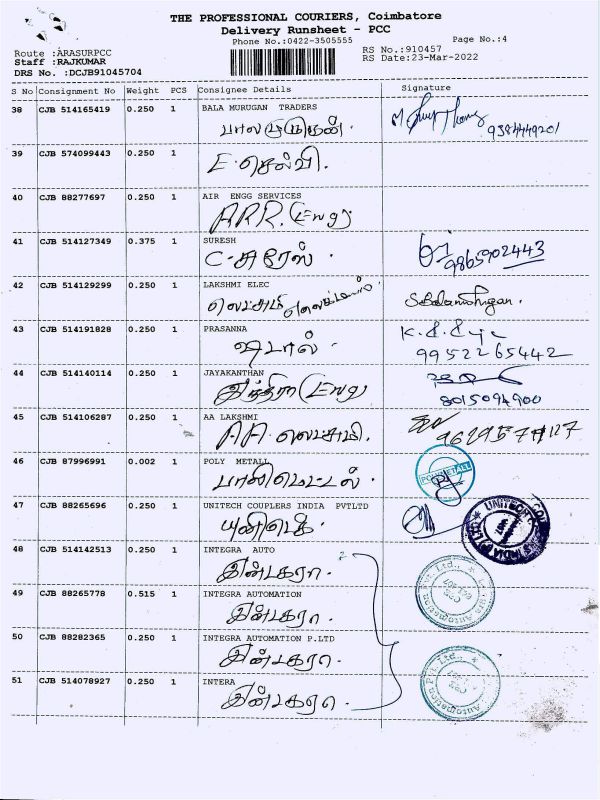 THE PROFESSIONAL COURIERS, Coimbatore
Delivery Runsheet - PCC
Phone No.:0422-3505555
Page No.:4
Route :ARASURPCC
Staff :RAJKUMAR
DRS No. :DCJB91045704
RS No.:910457
RS Date:23-Mar-2022
S No Consignment No Weight PCS Consignee Details Signature
38 CJB 514165419 0.250 1 BALA MURUGAN TRADERS
பாலமுருகன்.
9384449201
39 CJB 574099443 0.250 1
E. செல்வி.
40 CJB 88277697 0.250 1 AIR ENGG SERVICES
ARR. (Eng)
41 CJB 514127349 0.375 1 SURESH
C. சுரேஸ்.
9865902443
42 CJB 514129299 0.250 1 LAKSHMI ELEC
லெட்சுமி
S.Balamurugan.
43 CJB 514191828 0.250 1 PRASANNA
ஷடால்.
9952265442
44 CJB 514140114 0.250 1 JAYAKANTHAN
இந்திரா (Eng)
8015094900
45 CJB 514106287 0.250 1 AA LAKSHMI
A.A. லெட்சுமி.
46 CJB 87996991 0.002 1 POLY METALL
பாலிமெட்டல்.
POLY METALL
47 CJB 88265696 0.250 1 UNITECH COUPLERS INDIA PVTLTD
யுனிடெக்.
48 CJB 514142513 0.250 1 INTEGRA AUTO
இன்டகரா.
49 CJB 88265778 0.515 1 INTEGRA AUTOMATION
இன்டகரா.
50 CJB 88282365 0.250 1 INTEGRA AUTOMATION P.LTD
இன்டகரா.
51 CJB 514078927 0.250 1 INTERA
இன்டகரா.